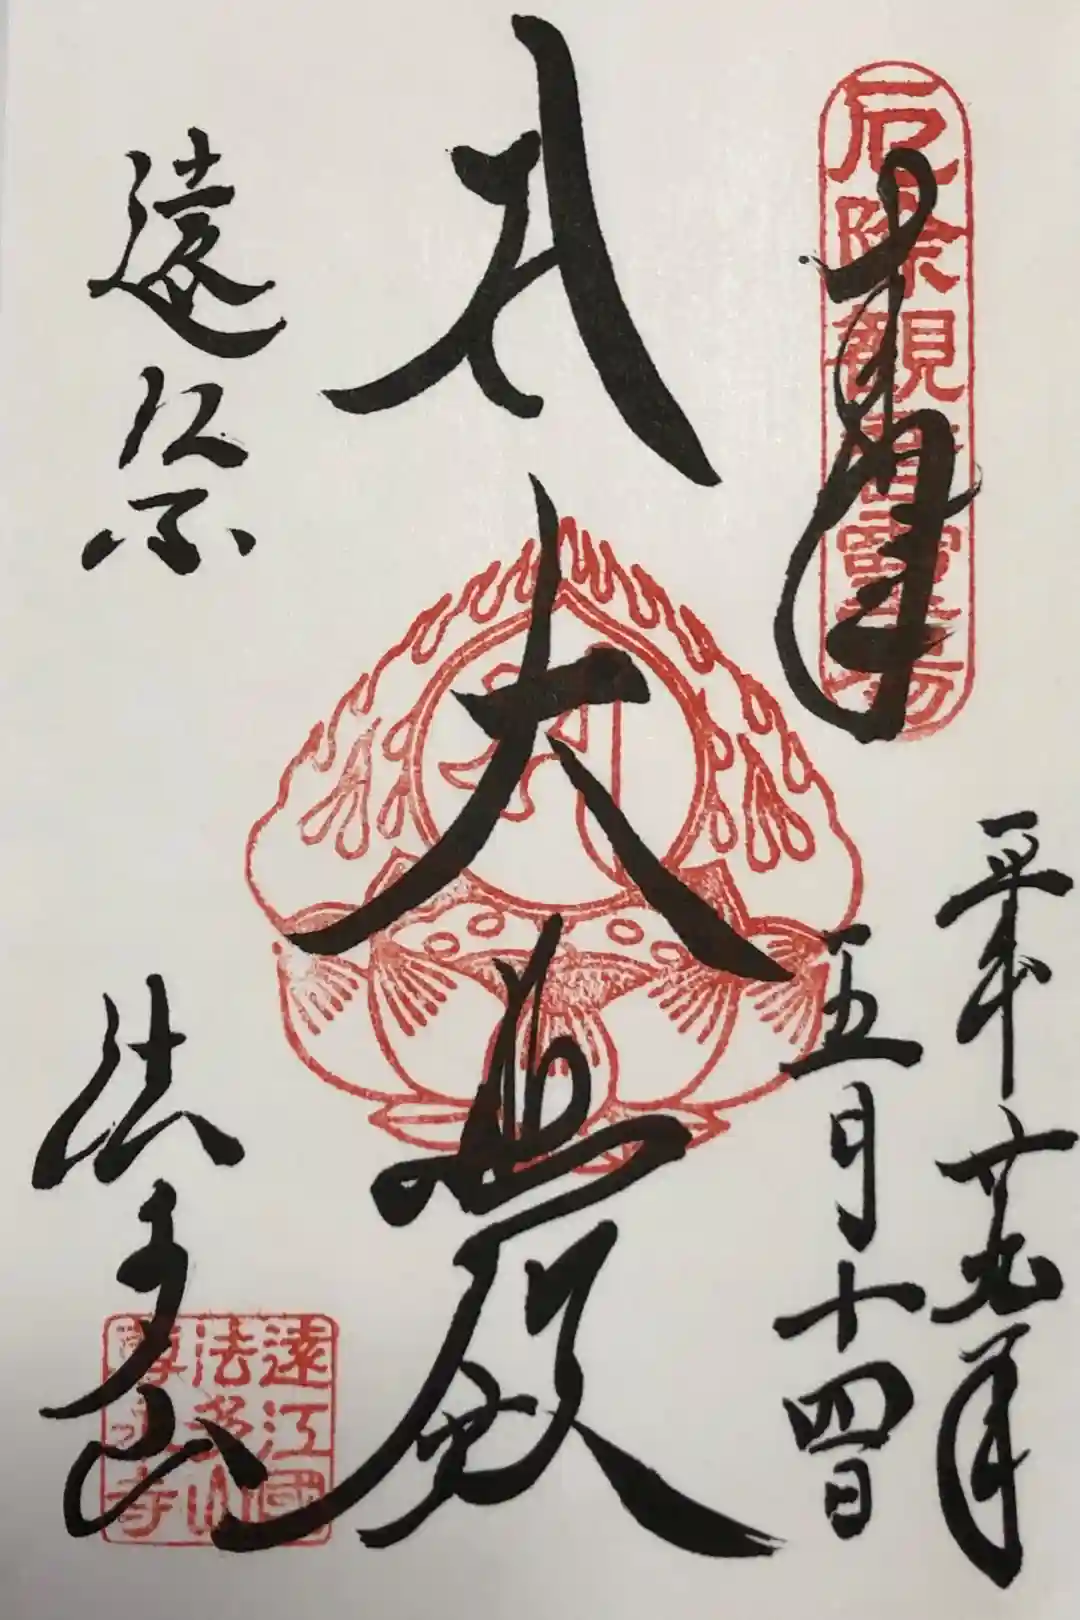 厄除観音霊場
奉拝
平成廿九年
五月十四日
大悲殿
遠江国
法多山
遠江國
法多山
尊永寺